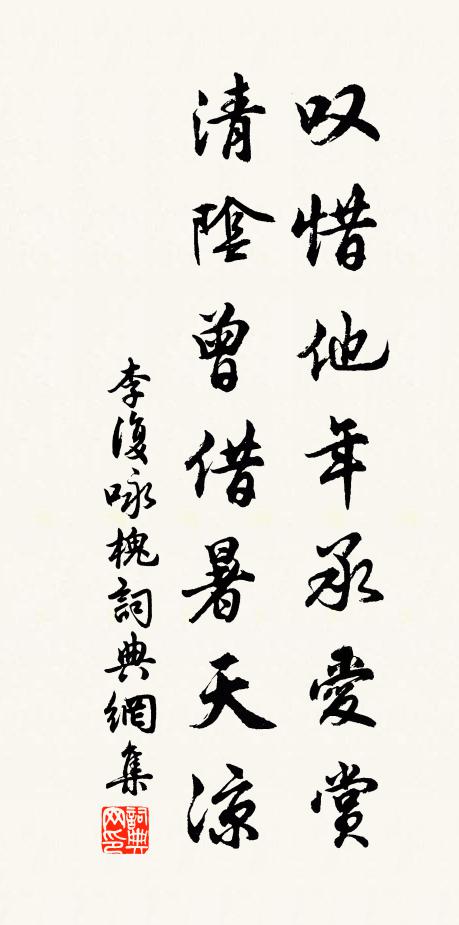 叹惜他年承愛賞
清陰曾借暑天涼
李復咏槐詞典網集
詞典网印